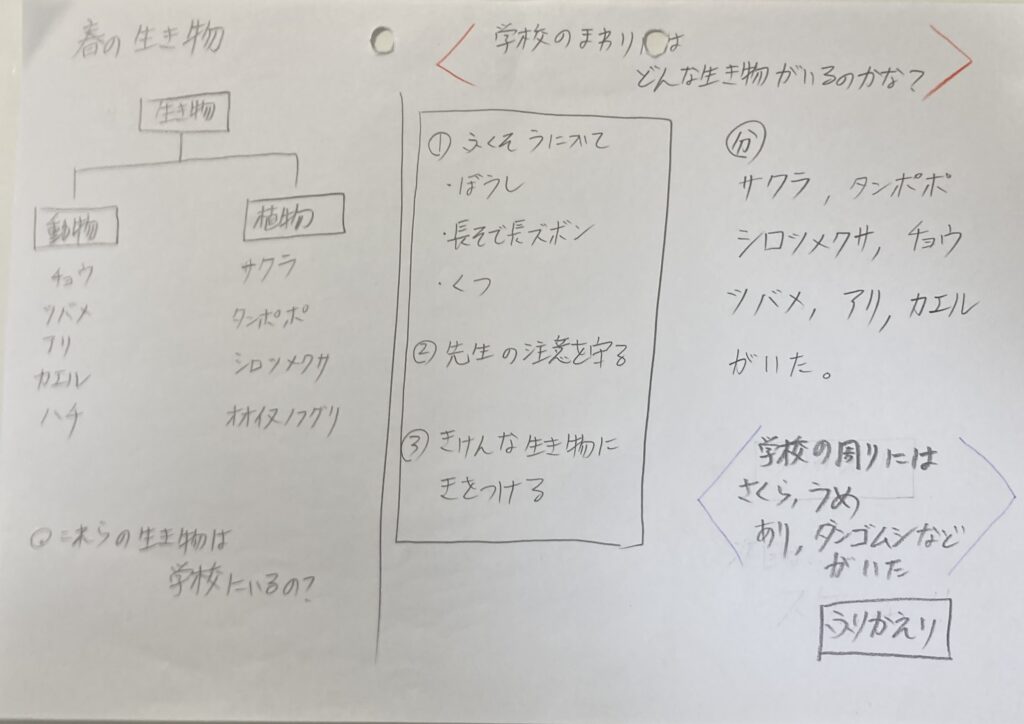 春の生き物
生き物
動物
チョウ
ツバメ
アリ
カエル
ハチ
植物
サクラ
タンポポ
シロツメクサ
オオイヌノフグリ
Q これらの生き物は
学校にいるの?
学校のまわりには
どんな生き物がいるのかな?
① ふくそうについて
・ぼうし
・長そで長ズボン
・くつ
② 先生の注意を守る
③ きけんな生き物に
きをつける
分
サクラ, タンポポ
シロツメクサ, チョウ
ツバメ, アリ, カエル
がいた。
学校の周りには
さくら, うめ
あり, ダンゴムシなど
がいた
ふりかえり